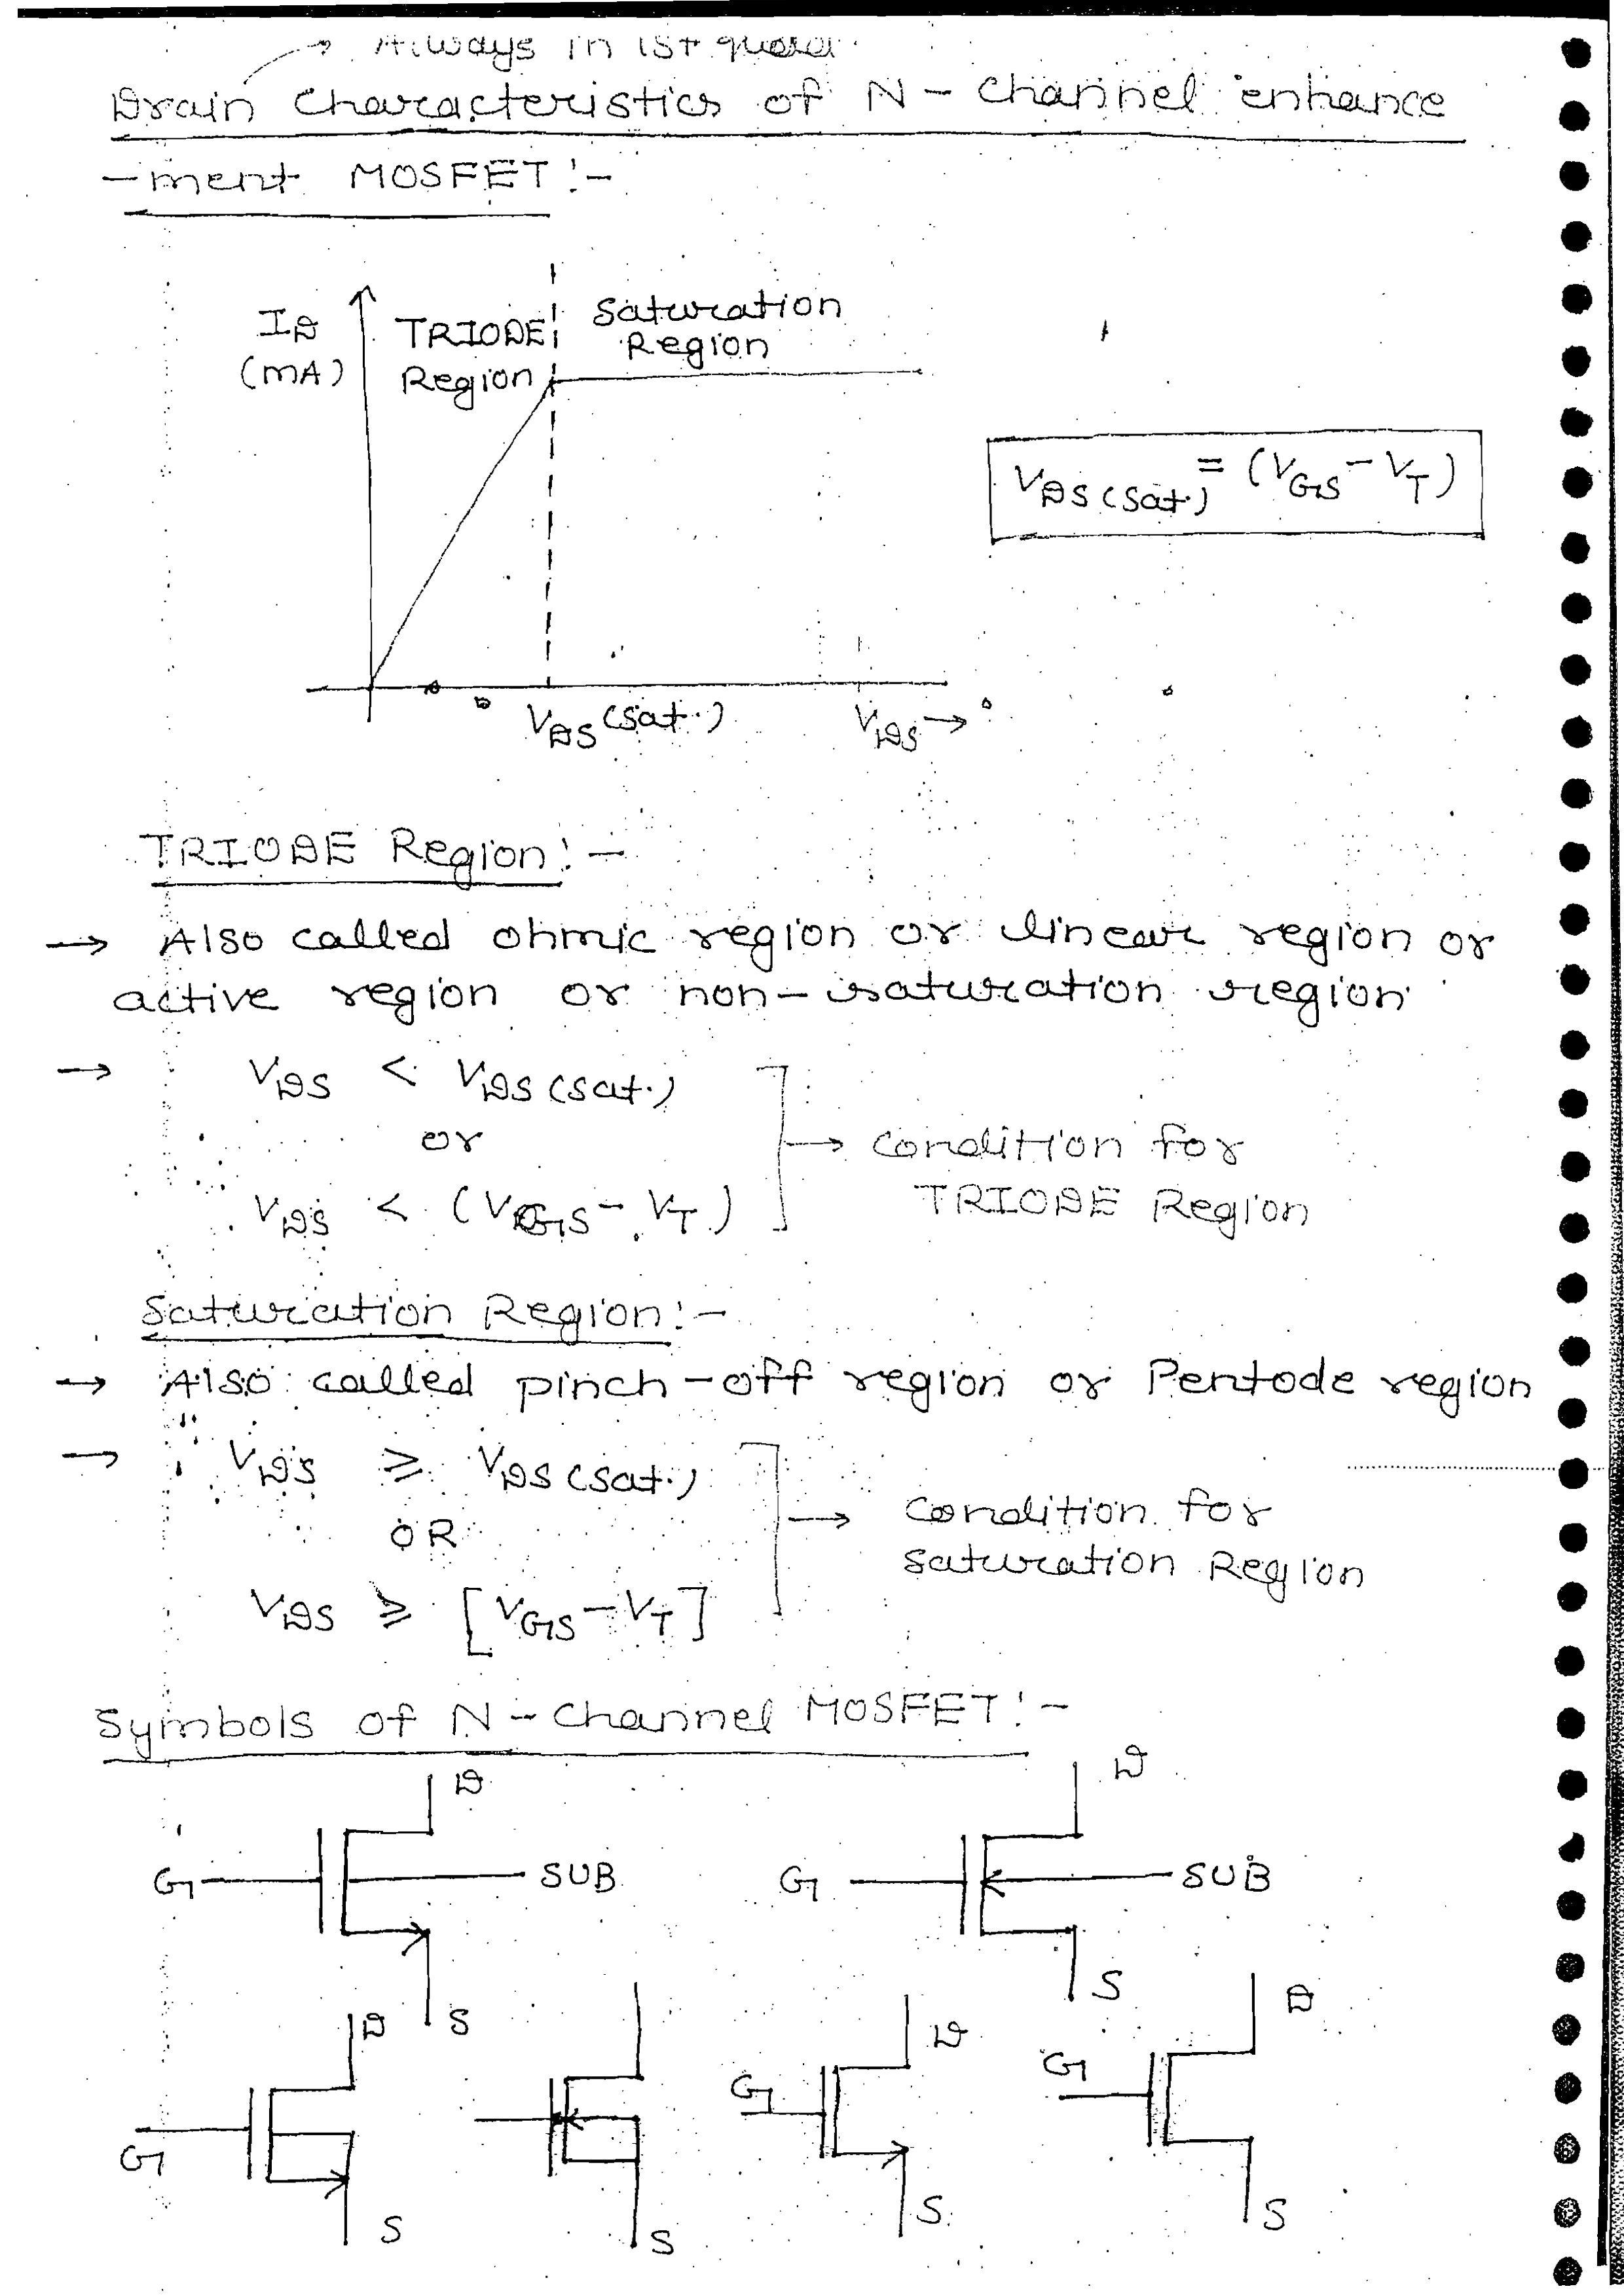 → Always in 1st quad.
Drain Characteristics of N - Channel enhance
-ment MOSFET :-
ID
(mA)
TRIODE
Region
Saturation
Region
VDS(sat.) = (VGS - VT)
VDS(sat.)
VDS →
TRIODE Region :-
→ Also called ohmic region or linear region or
active region or non-saturation region
→ VDS < VDS(sat.)
or
VDS < (VGS - VT)
→ condition for
TRIODE Region
Saturation Region :-
→ Also called pinch-off region or Pentode region
→ VDS ≥ VDS(sat.)
OR
VDS ≥ [VGS - VT]
→ Condition for
saturation Region
Symbols of N - Channel MOSFET :-
D
G
SUB
S
D
G
SUB
S
D
G
S
S
D
G
S
D
G
S